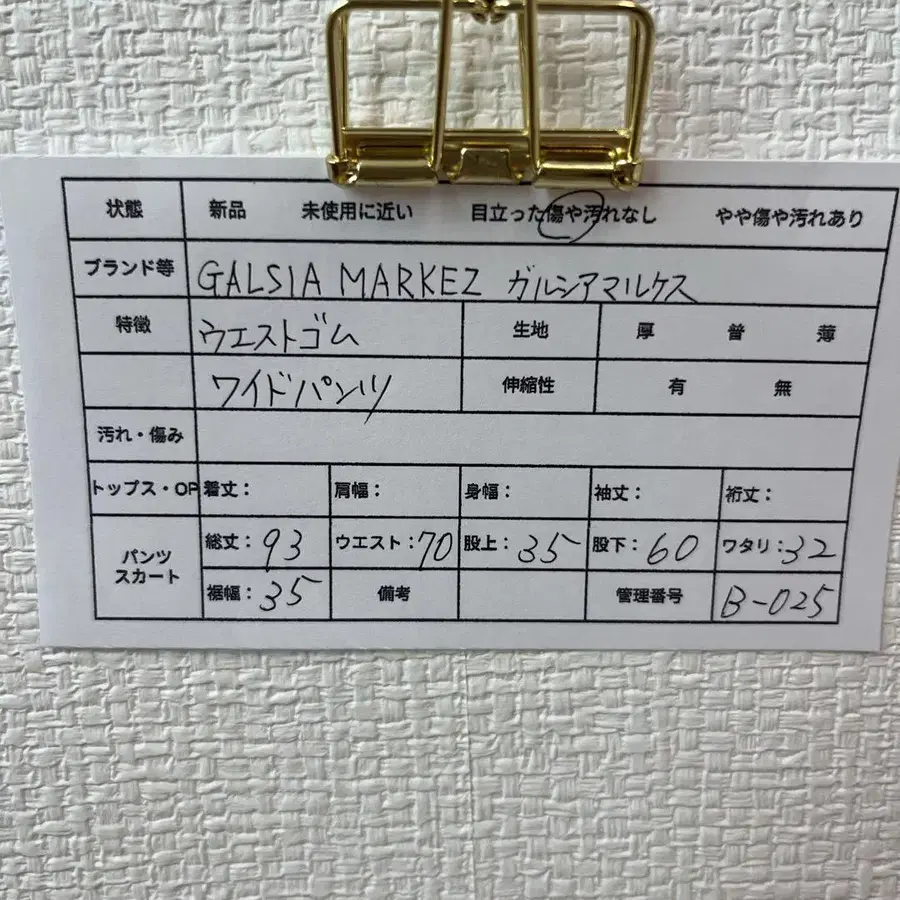 状態 新品 未使用に近い 目立った傷や汚れなし やや傷や汚れあり
ブランド等 GALSIA MARKEZ ガルシアマルケス
特徴 ウエストゴム 生地 厚 普 薄
ワイドパンツ 伸縮性 有 無
汚れ・傷み
トップス・OP 着丈： 肩幅： 身幅： 袖丈： 裄丈：
パンツ スカート 総丈：93 ウエスト：70 股上：35 股下：60 ワタリ：32
裾幅：35 備考 管理番号 B-025